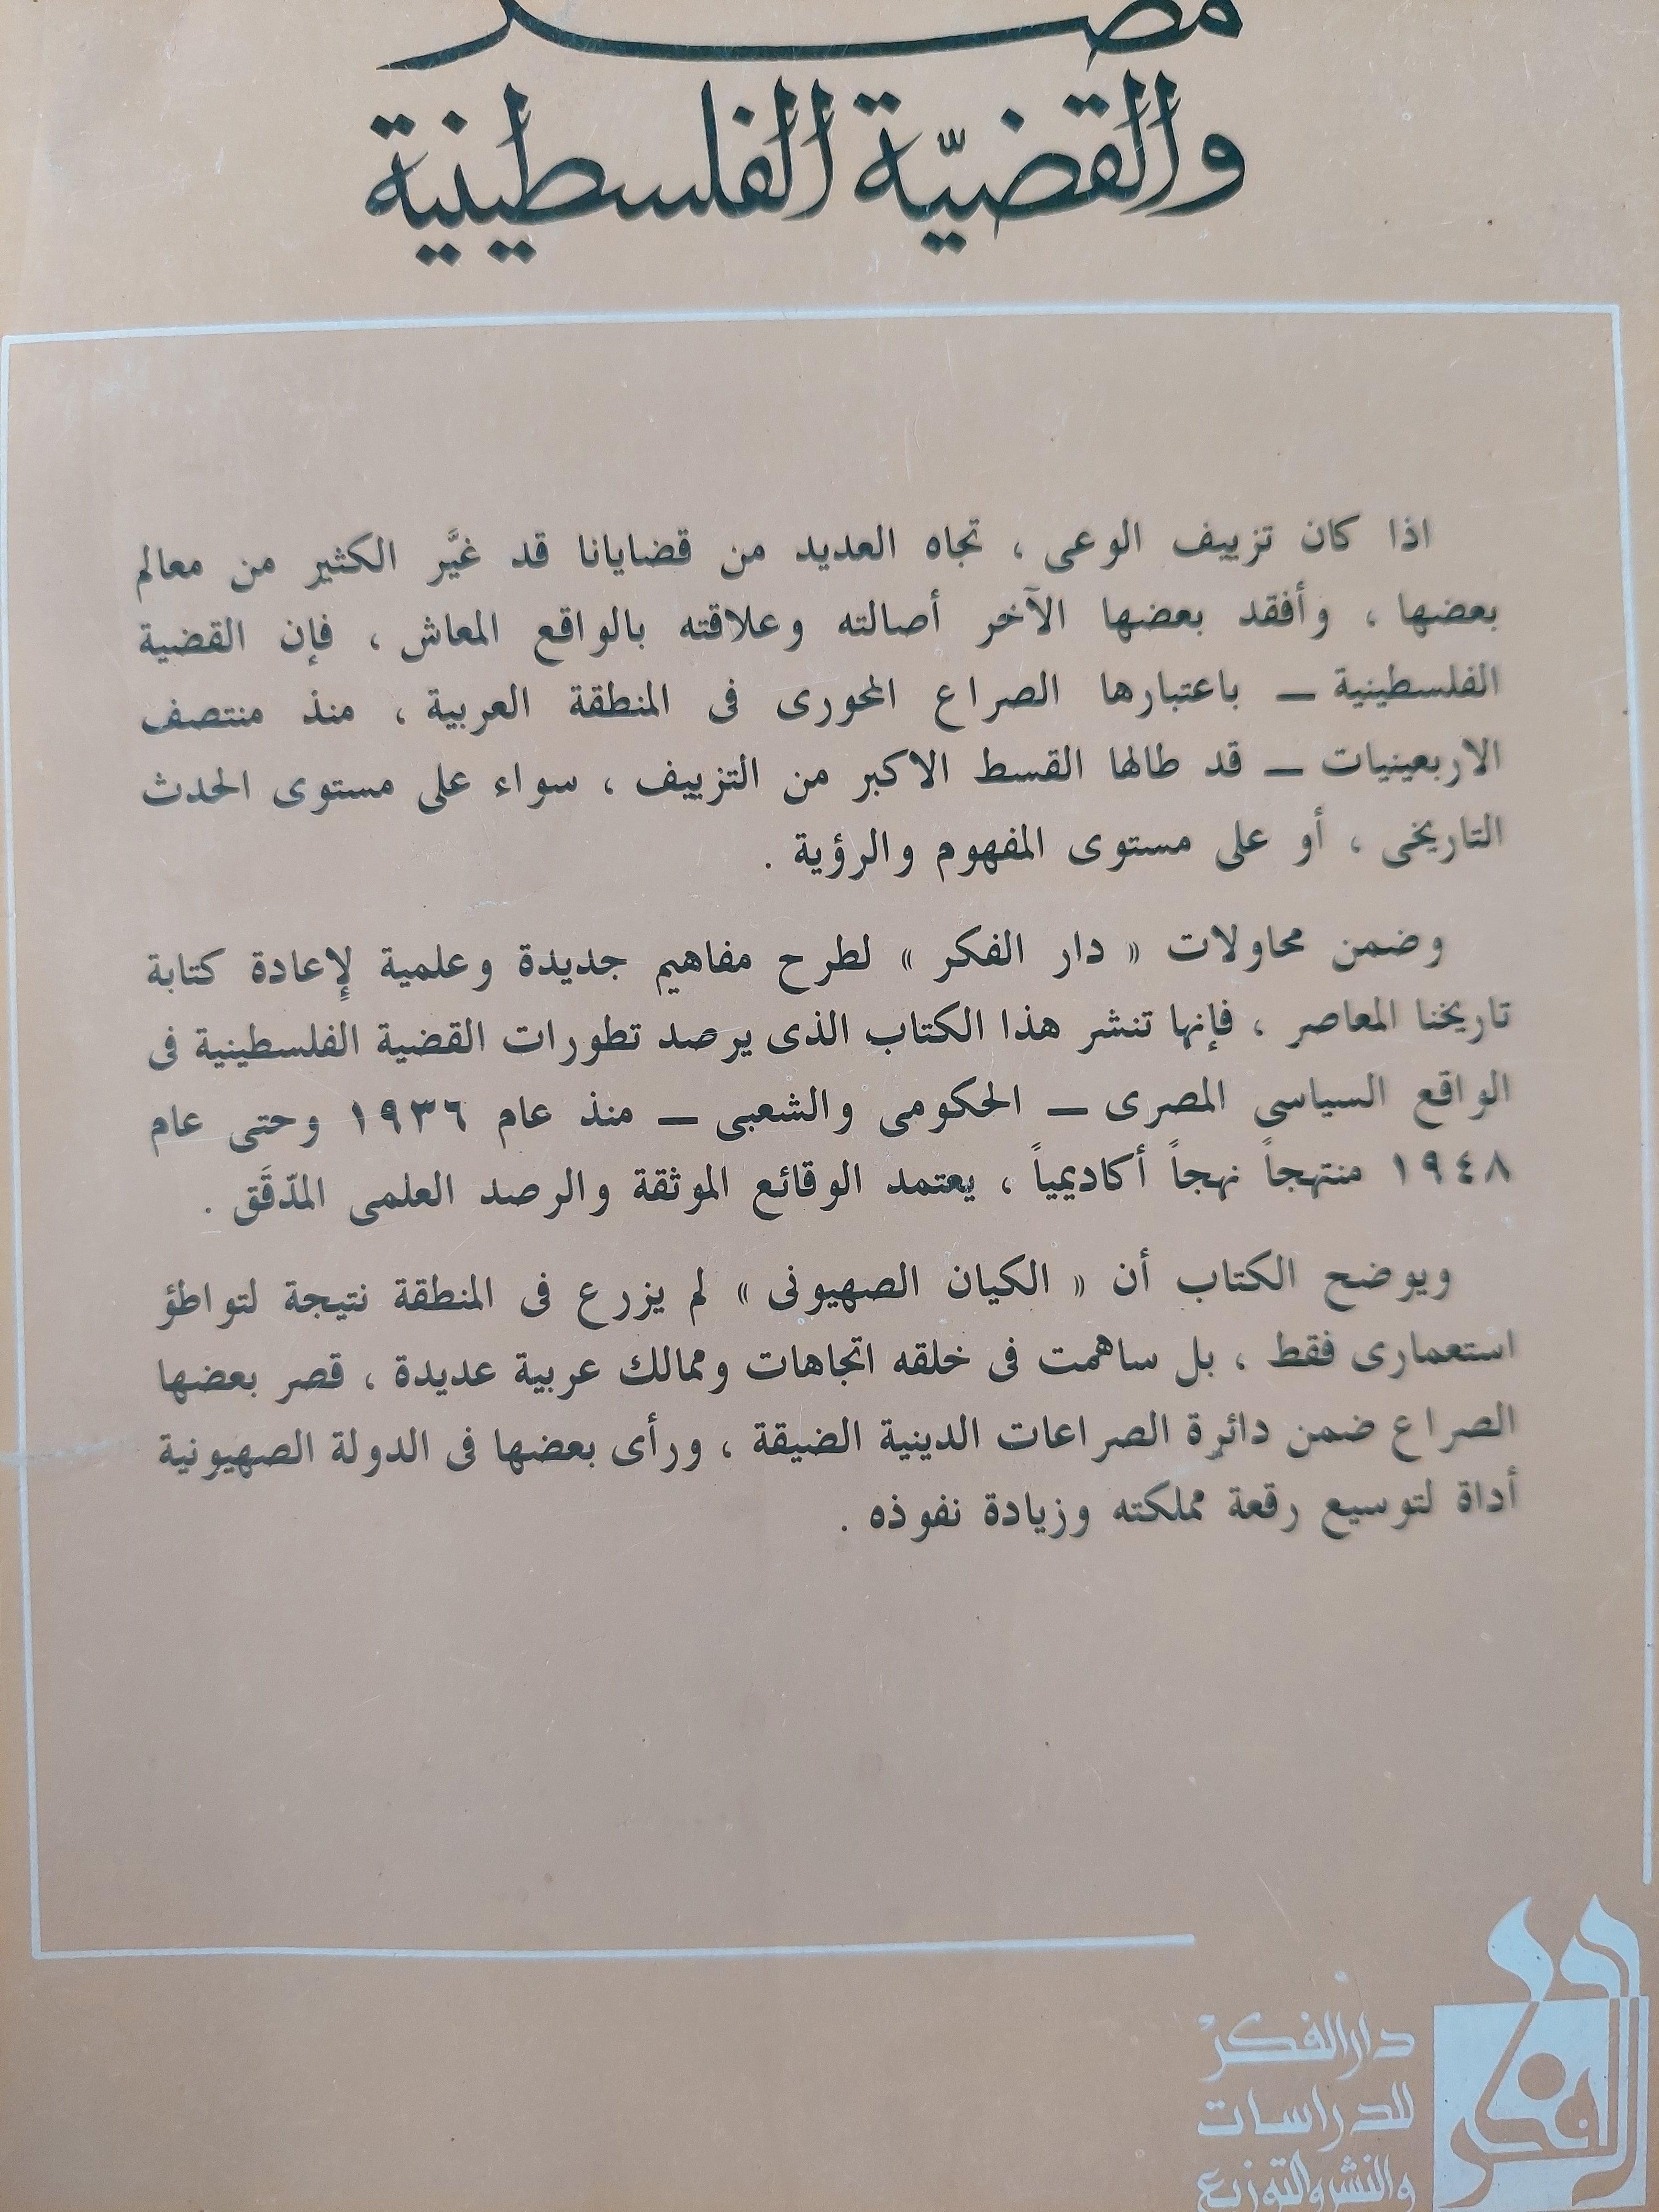 مصر
والقضيّة الفلسطينية
اذا كان تزييف الوعى ، تجاه العديد من قضايانا قد غيَّر الكثير من معالم
بعضها ، وأفقد بعضها الآخر أصالته وعلاقته بالواقع المعاش ، فإن القضية
الفلسطينية ـ باعتبارها الصراع المحورى فى المنطقة العربية ، منذ منتصف
الاربعينيات ـ قد طالها القسط الاكبر من التزييف ، سواء على مستوى الحدث
التاريخى ، أو على مستوى المفهوم والرؤية .
وضمن محاولات « دار الفكر » لطرح مفاهيم جديدة وعلمية لإِعادة كتابة
تاريخنا المعاصر ، فإنها تنشر هذا الكتاب الذى يرصد تطورات القضية الفلسطينية فى
الواقع السياسى المصرى ـ الحكومى والشعبى ـ منذ عام ١٩٣٦ وحتى عام
١٩٤٨ منتهجاً نهجاً أكاديمياً ، يعتمد الوقائع الموثقة والرصد العلمى المدّقَق .
ويوضح الكتاب أن « الكيان الصهيونى » لم يزرع فى المنطقة نتيجة لتواطؤ
استعمارى فقط ، بل ساهمت فى خلقه اتجاهات وممالك عربية عديدة ، قصر بعضها
الصراع ضمن دائرة الصراعات الدينية الضيقة ، ورأى بعضها فى الدولة الصهيونية
أداة لتوسيع رقعة مملكته وزيادة نفوذه .
دار الفكر
للدراسات
والنشر والتوزيع
دار الفكر